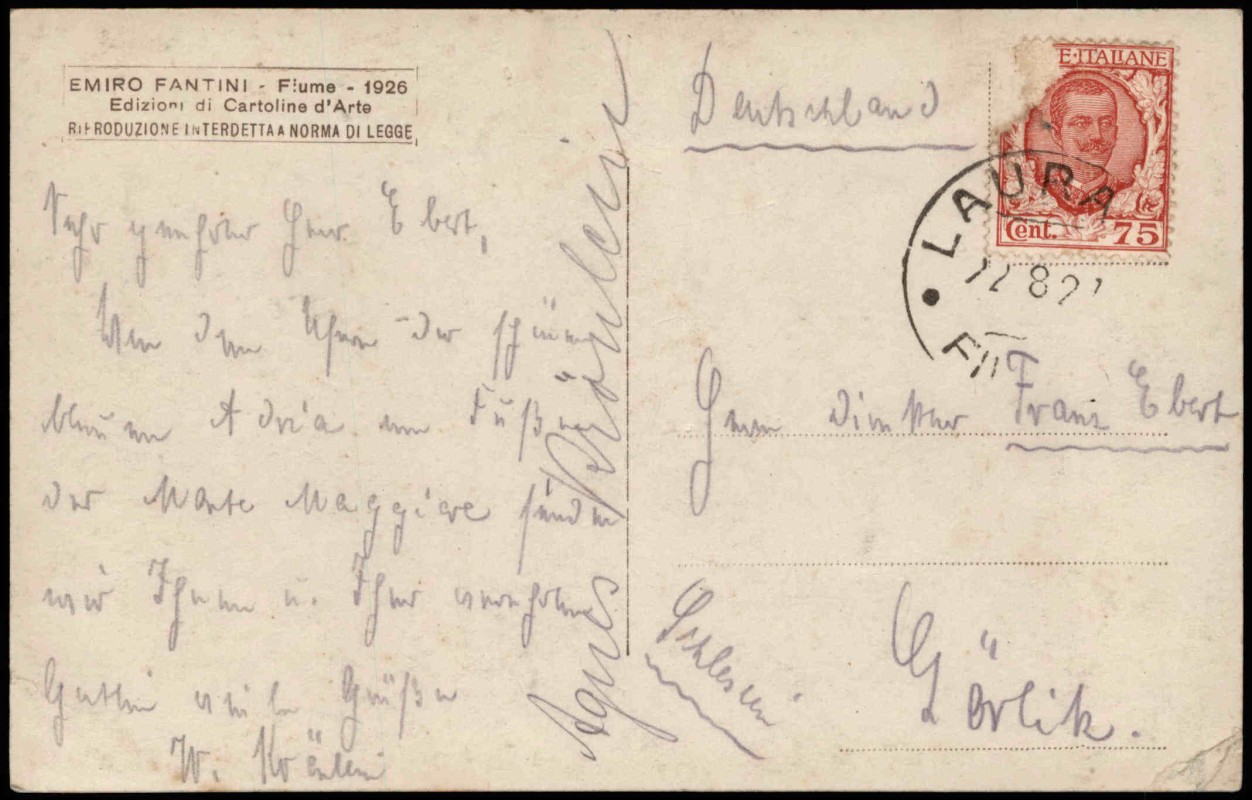 EMIRO FANTINI - Fiume - 1926
Edizioni di Cartoline d'Arte
RIPRODUZIONE INTERDETTA A NORMA DI LEGGE
Sehr geehrter Herr Ebert,
Von dem Ufern der schönen
blauen Adria am Fuße
der Monte Maggiore senden
wir Ihnen u. Ihrer verehrten
Gattin viele Grüße
W.
Agnes
Deutschland
E·ITALIANE
Cent. 75
LAURA
22 8 27
Herrn Direktor Franz Ebert
Görlitz.
Schlesien